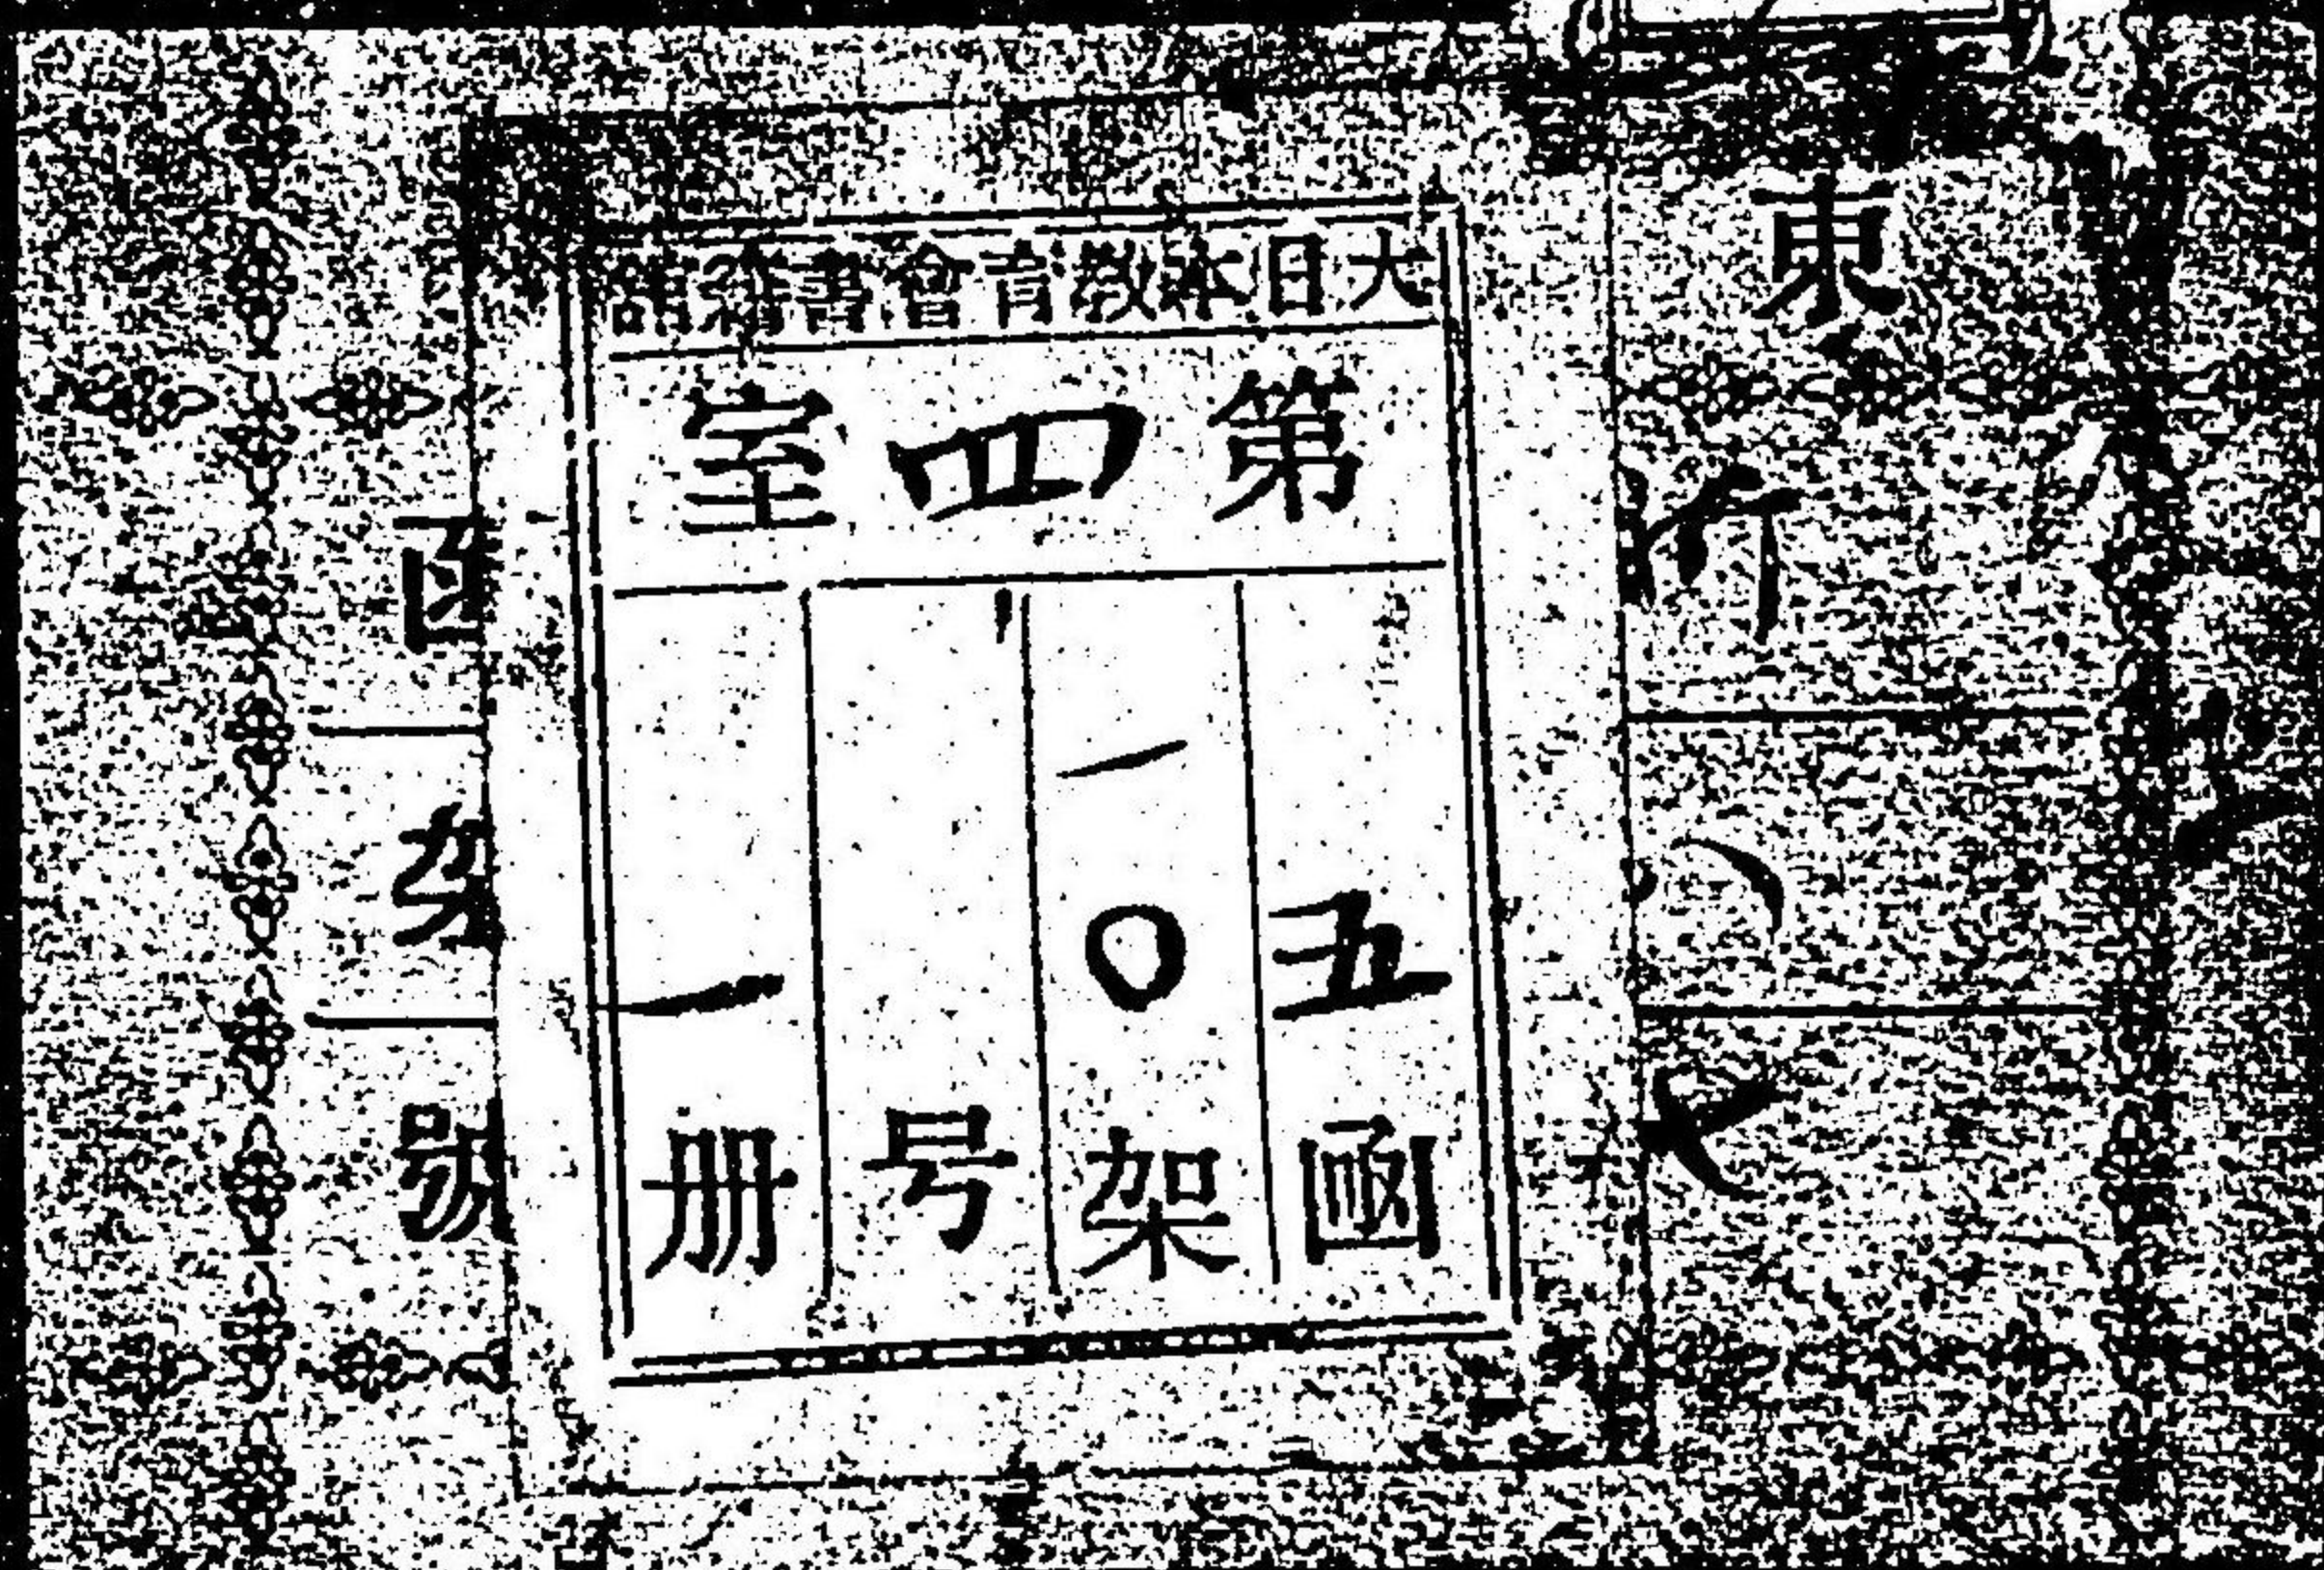 大日本教育會書籍館
第四室
五函
一〇架
号
一册
東
新
函
八
架
七
號